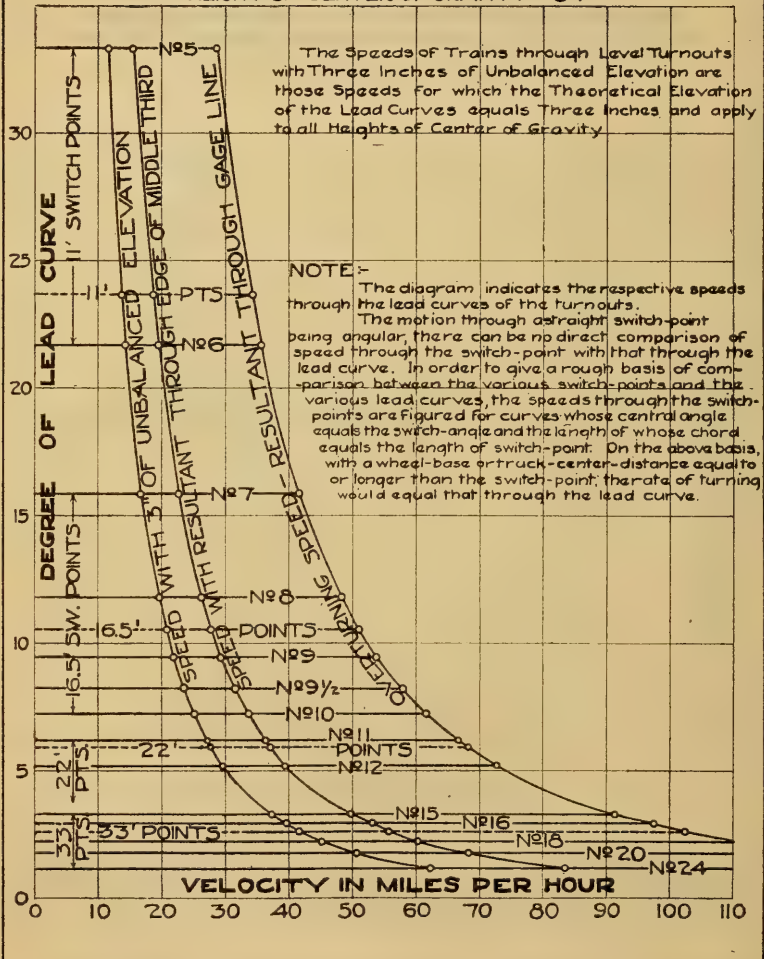 The Speeds of Trains through Level Turnouts
with Three Inches of Unbalanced Elevation are
those Speeds for which the Theoretical Elevation
of the Lead Curves equals Three Inches and apply
to all Heights of Center of Gravity
NOTE:-
The diagram indicates the respective speeds
through the lead curves of the turnouts.
The motion through a straight switch-point
being angular, there can be no direct comparison of
speed through the switch-point with that through the
lead curve. In order to give a rough basis of com-
-parison between the various switch-points and the
various lead curves, the speeds through the switch-
points are figured for curves whose central angle
equals the switch-angle and the length of whose chord
equals the length of switch-point. On the above basis,
with a wheel-base or truck-center-distance equal to
or longer than the switch-point, the rate of turning
would equal that through the lead curve.
DEGREE OF LEAD CURVE
11' SWITCH POINTS
16.5' SW. POINTS
22' PTS
33' PTS
SPEED WITH 3" OF UNBALANCED ELEVATION
SPEED WITH RESULTANT THROUGH EDGE OF MIDDLE THIRD
OVERTURNING SPEED-RESULTANT THROUGH GAGE LINE
Nº5
11' PTS
Nº6
Nº7
Nº8
16.5' POINTS
Nº9
Nº9½
Nº10
Nº11
22' POINTS
Nº12
Nº15
Nº16
33' POINTS
Nº18
Nº20
Nº24
30
25
20
15
10
5
0
VELOCITY IN MILES PER HOUR
0 10 20 30 40 50 60 70 80 90 100 110